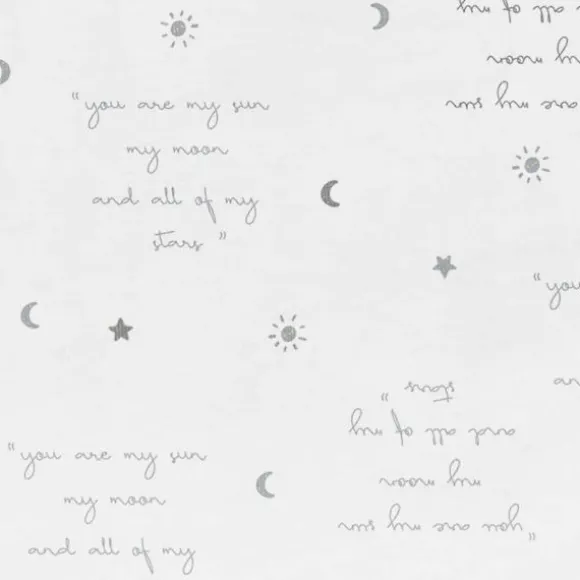 and all of my
my moon
you are my sun
“you are my sun
my moon
and all of my
stars”
“you
an
stars”
and all of my
my moon
“you are my sun
“you are my sun
my moon
and all of my